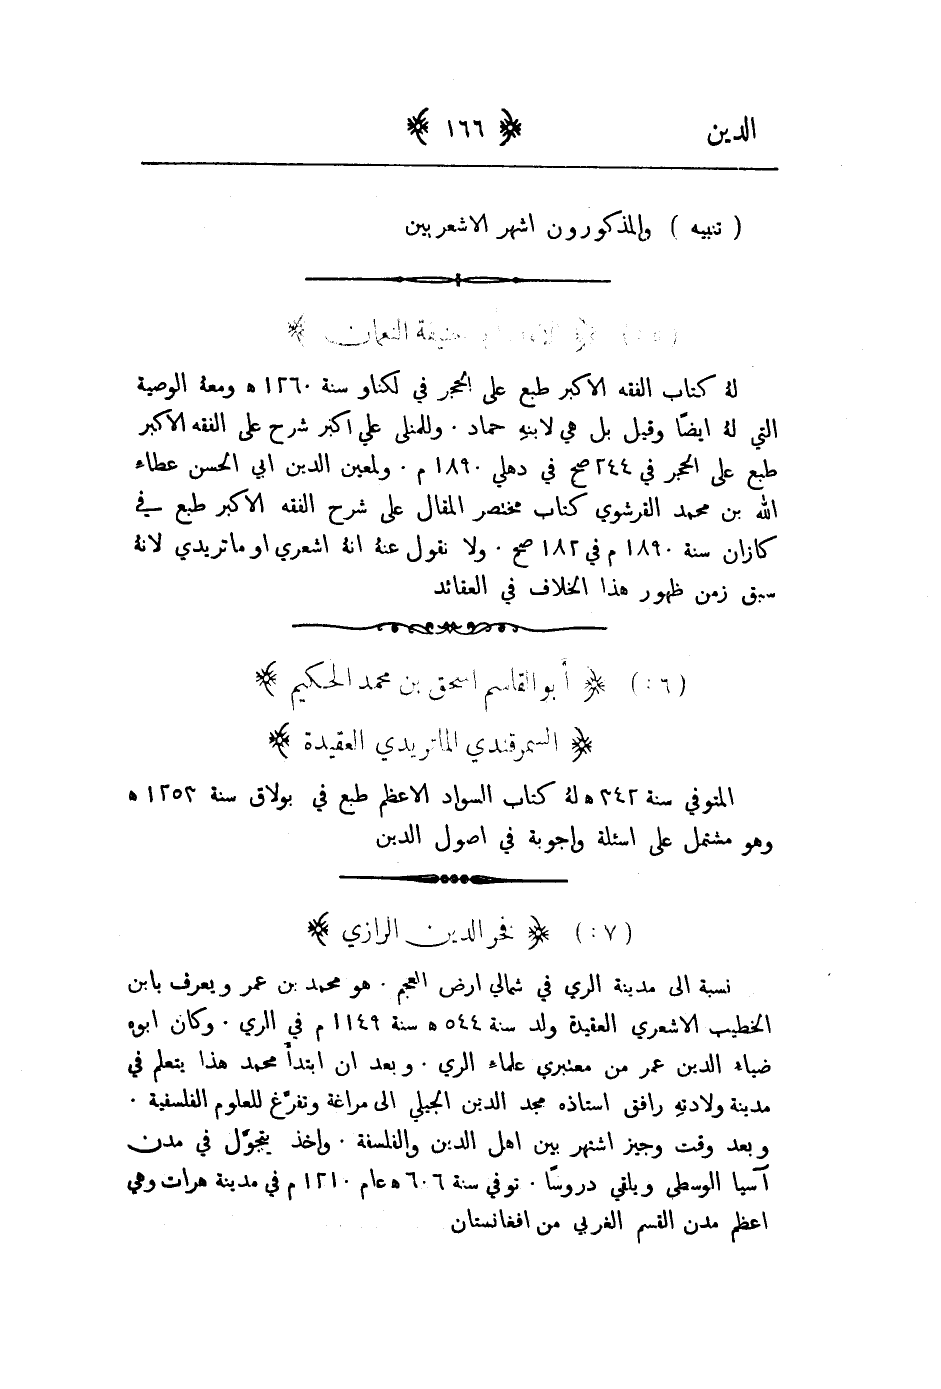 الدين ﴿ ١٦٦ ﴾
( تنبيه ) والمذكورون اشهر الاشعريين
( ٥ : ) حنيفة النعمان ﴾
لهُ كتاب الفقه الاكبر طبع على الحجر في لكناو سنة ١٢٦٠ ه ومعهُ الوصية
التي لهُ ايضًا وقيل بل هي لابنهِ حماد ٠ وللمنلى علي اكبر شرح على الفقه الاكبر
طبع على الحجر في ٢٤٤ صح في دهلي ١٨٩٠ م ٠ ولمعين الدين ابي الحسن عطاء
الله بن محمد القرشوي كتاب مختصر المقال على شرح الفقه الاكبر طبع في
كازان سنة ١٨٩٠ م في ١٨٢ صح ٠ ولا نقول عنهُ انهُ اشعري او ماتريدي لانهُ
سبق زمن ظهور هذا الخلاف في العقائد
( ٦ : ) ﴿ أبو القاسم اسحق بن محمد الحكيم ﴾
﴿ السمرقندي الماتريدي العقيدة ﴾
المتوفي سنة ٣٤٢ ه لهُ كتاب السواد الاعظم طبع في بولاق سنة ١٢٥٣ ه
وهو مشتمل على اسئلة واجوبة في اصول الدين
( ٧ : ) ﴿ فخر الدين الرازي ﴾
نسبة الى مدينة الري في شمالي ارض العجم ٠ هو محمد بن عمر ويعرف بابن
الخطيب الاشعري العقيدة ولد سنة ٥٤٤ ه سنة ١١٤٩ م في الري ٠ وكان ابوه
ضياء الدين عمر من معتبري علماء الري ٠ وبعد ان ابتدأ محمد هذا يتعلم في
مدينة ولادتهِ رافق استاذه مجد الدين الجيلي الى مراغة وتفرَّغ للعلوم الفلسفية ٠
وبعد وقت وجيز اشتهر بين اهل الدين والفلسفة ٠ واخذ يتجوَّل في مدن
آسيا الوسطى ويلقي دروسًا ٠ توفي سنة ٦٠٦ ه عام ١٢١٠ م في مدينة هرات وهي
اعظم مدن القسم الغربي من افغانستان